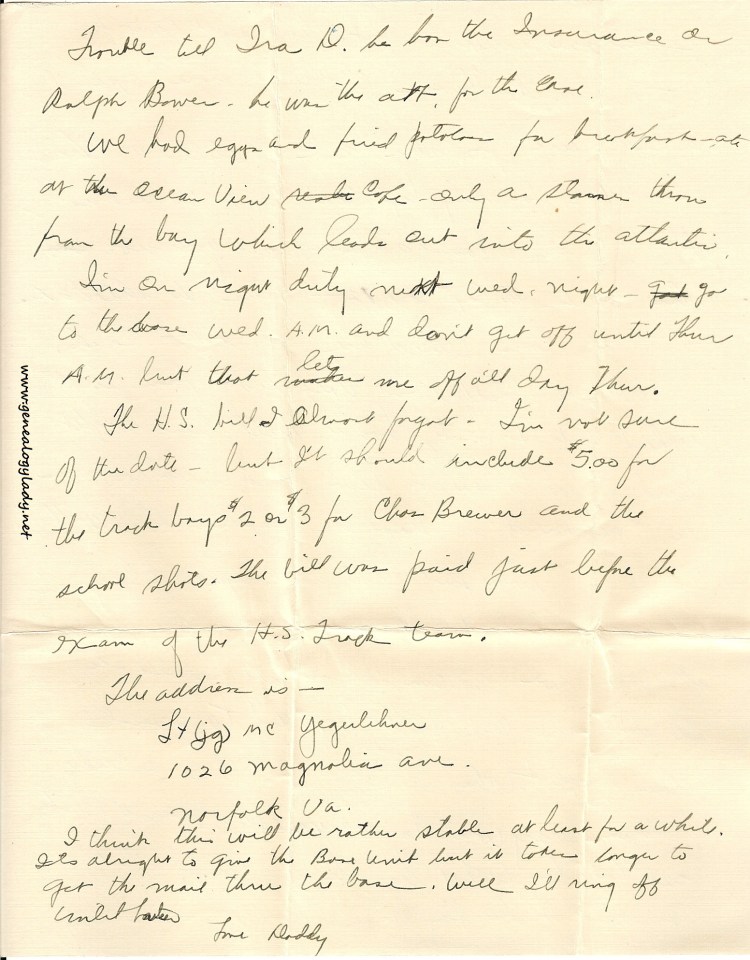 Trouble tell Ira D. he has the Insurance or
Ralph Bower - he was the att. for the Case.
We had eggs and fried potatoes for breakfast - ate
at the Ocean View Cafe - only a stones throw
from the bay which leads out into the atlantic.
I'm on night duty next wed. night - go
to the base wed. A.M. and don't get off until Thur
A.M. but that lets me off all day Thur.
The H.S. bill I almost forgot - I'm not sure
of the date - but It should include $5.00 for
the track boys $2 or $3 for Chas Brewer and the
school shots. The bill was paid just before the
exam of the H.S. Track team.
The address is -
Lt (jg) MC Yegerlehner
1026 Magnolia ave.
Norfolk Va.
I think this will be rather stable at least for a while.
Its alright to give the Base Unit but it takes longer to
get the mail thru the base. Well I'll ring off
until later
Love Daddy
www.genealogylady.net